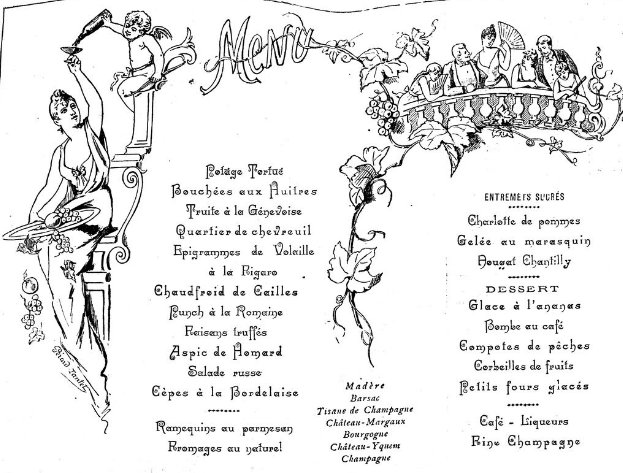 Menu
Potage Tortue
Bouchées aux Huîtres
Truite à la Génevoise
Quartier de chevreuil
Epigrammes de Volaille
à la Figaro
Chaudfroid de Cailles
Punch à la Romaine
Faisans truffés
Aspic de Homard
Salade russe
Cèpes à la Bordelaise
Ramequins au parmesan
Fromages au naturel
Madère
Barsac
Tisane de Champagne
Château-Margaux
Bourgogne
Château-Yquem
Champagne
ENTREMETS SUCRÉS
Charlotte de pommes
Gelée au marasquin
Nougat Chantilly
DESSERT
Glace à l'ananas
Bombe au café
Compotes de pêches
Corbeilles de fruits
Petits fours glacés
Café - Liqueurs
Fine Champagne